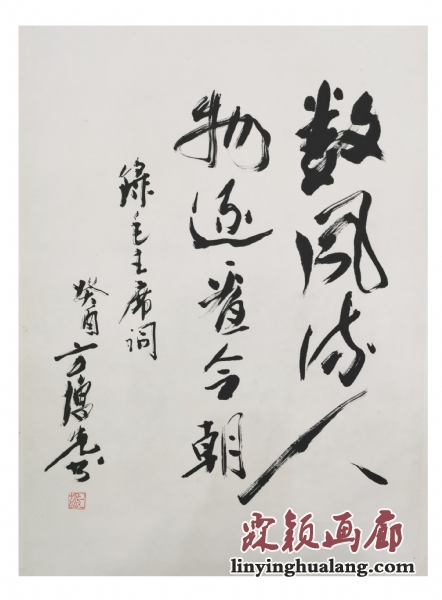 数风流人
物还看今朝
録毛主席词
癸酉方增先书
霖颖画廊
linyinghualang.com